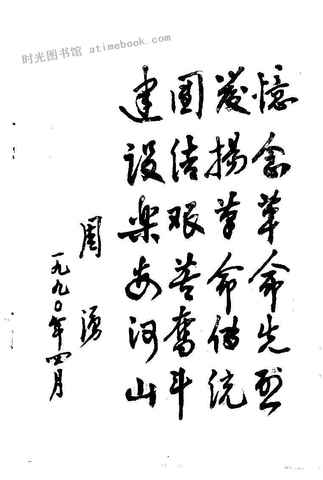 时光图书馆 atimebook.com
憶念革命先烈
發揚革命傳統
團结艰苦奮斗
建設樂安河山
周湧
一九九〇年四月